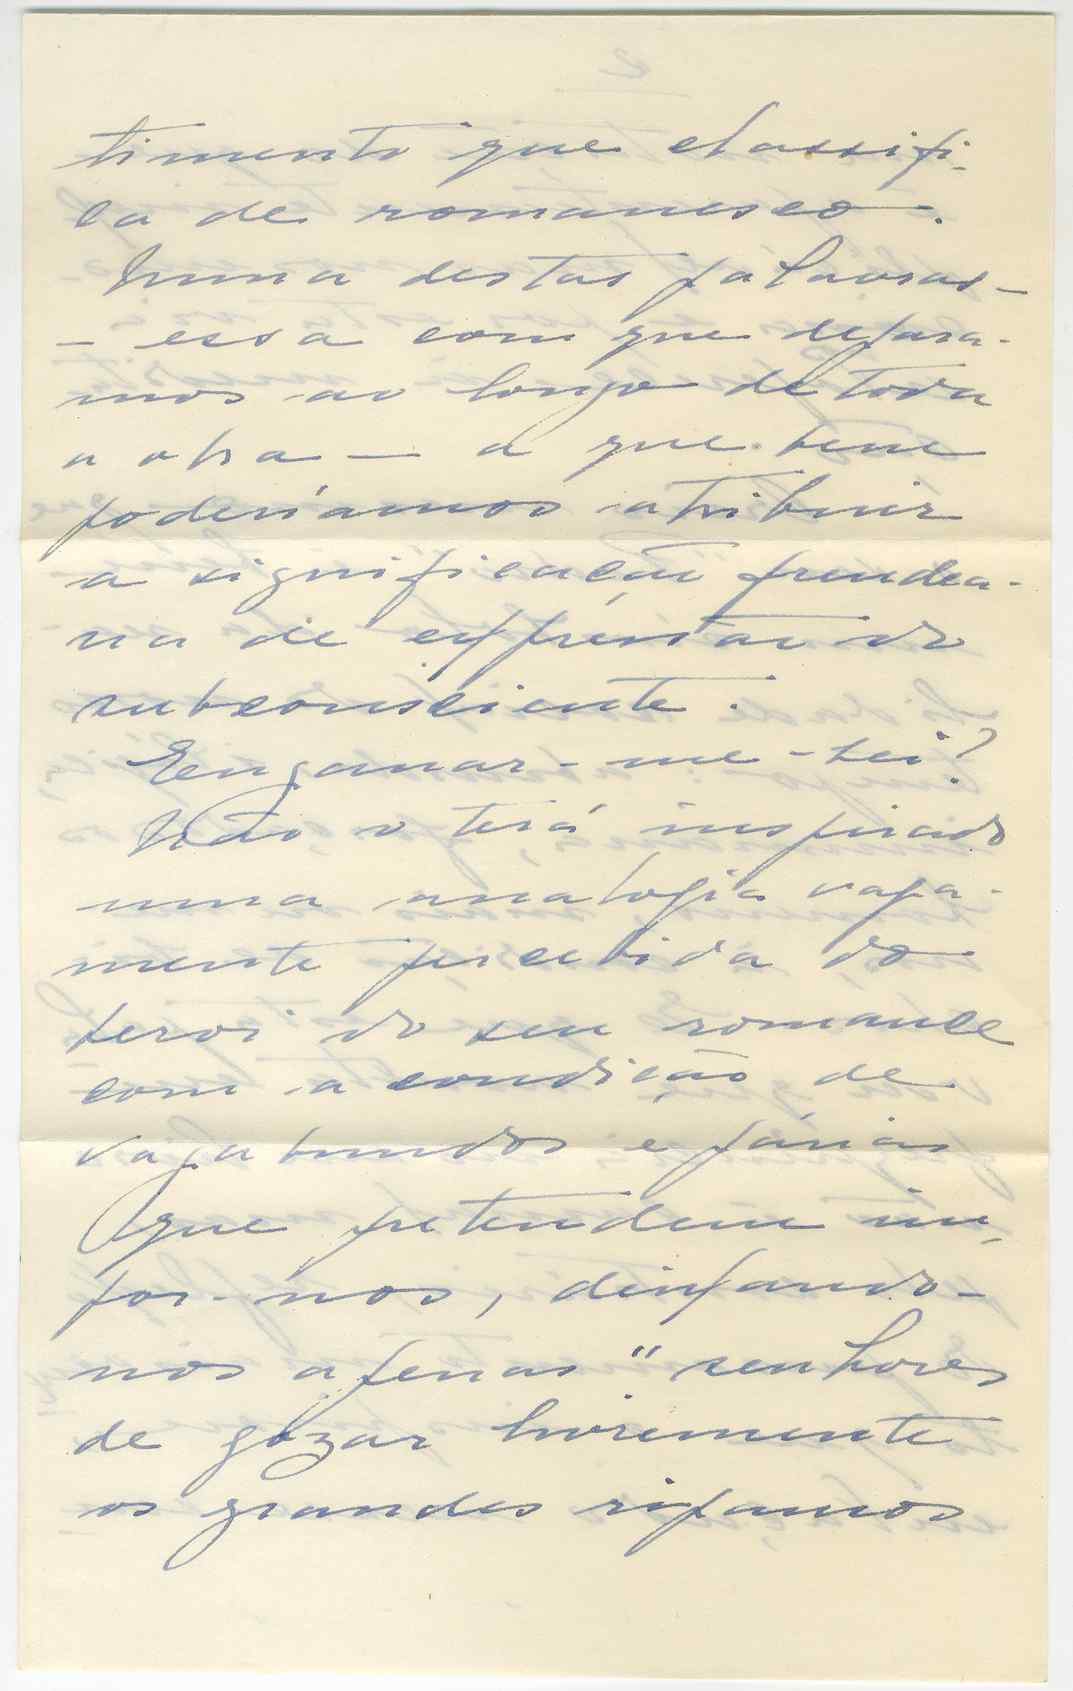 timento que classifi-
ca de romanesco.
Numa destas palavras -
- essa com que depara-
mos ao longo de toda
a obra - a que bem
poderíamos atribuir
a significação freudea-
na de expressão do
subconsciente.
Enganar-me-hei?
Não o terá inspirado
uma analogia vaga-
mente percebida do
heroi do seu romance
com a condição de
vagabundos e párias
que pretendem im-
por-nos, deixando-
nos apenas "senhores
de gozar livremente
os grandes rifamos